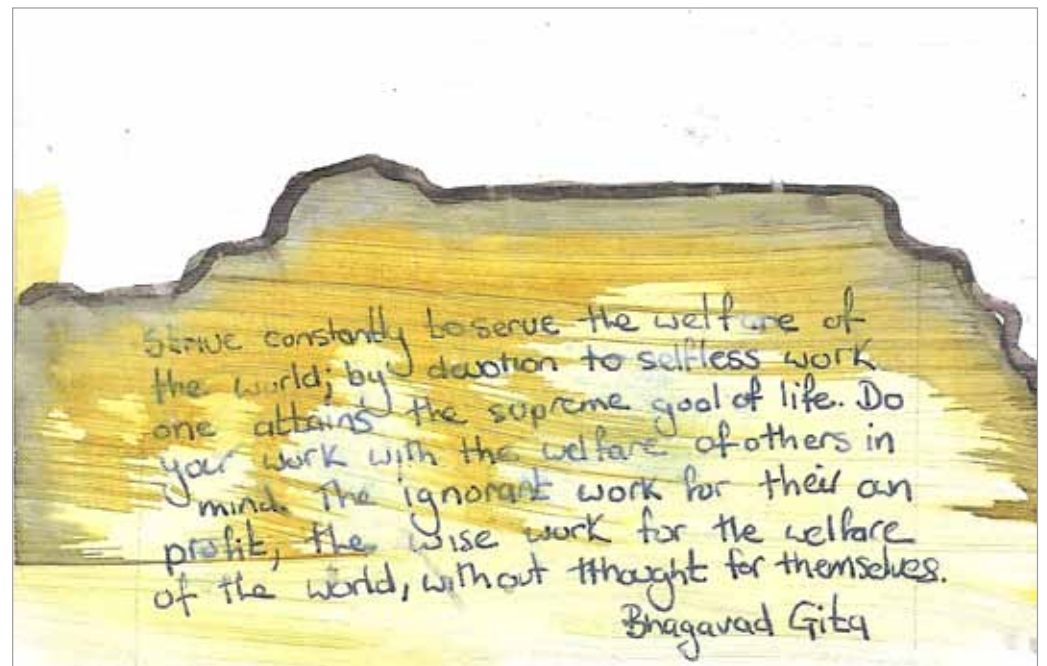 Strive constantly to serve the welfare of
the world; by devotion to selfless work
one attains the supreme goal of life. Do
your work with the welfare of others in
mind. The ignorant work for their own
profit, the wise work for the welfare
of the world, without tthought for themselves.
Bhagavad Gita